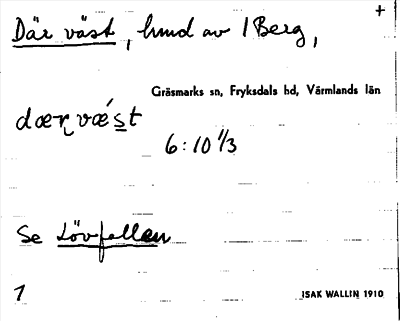 +
Där väst, hmd av 1 Berg,
Gräsmarks sn, Fryksdals hd, Värmlands län
dæɳvǽst
6:10 1/3
Se Lövfallen
1
ISAK WALLIN 1910